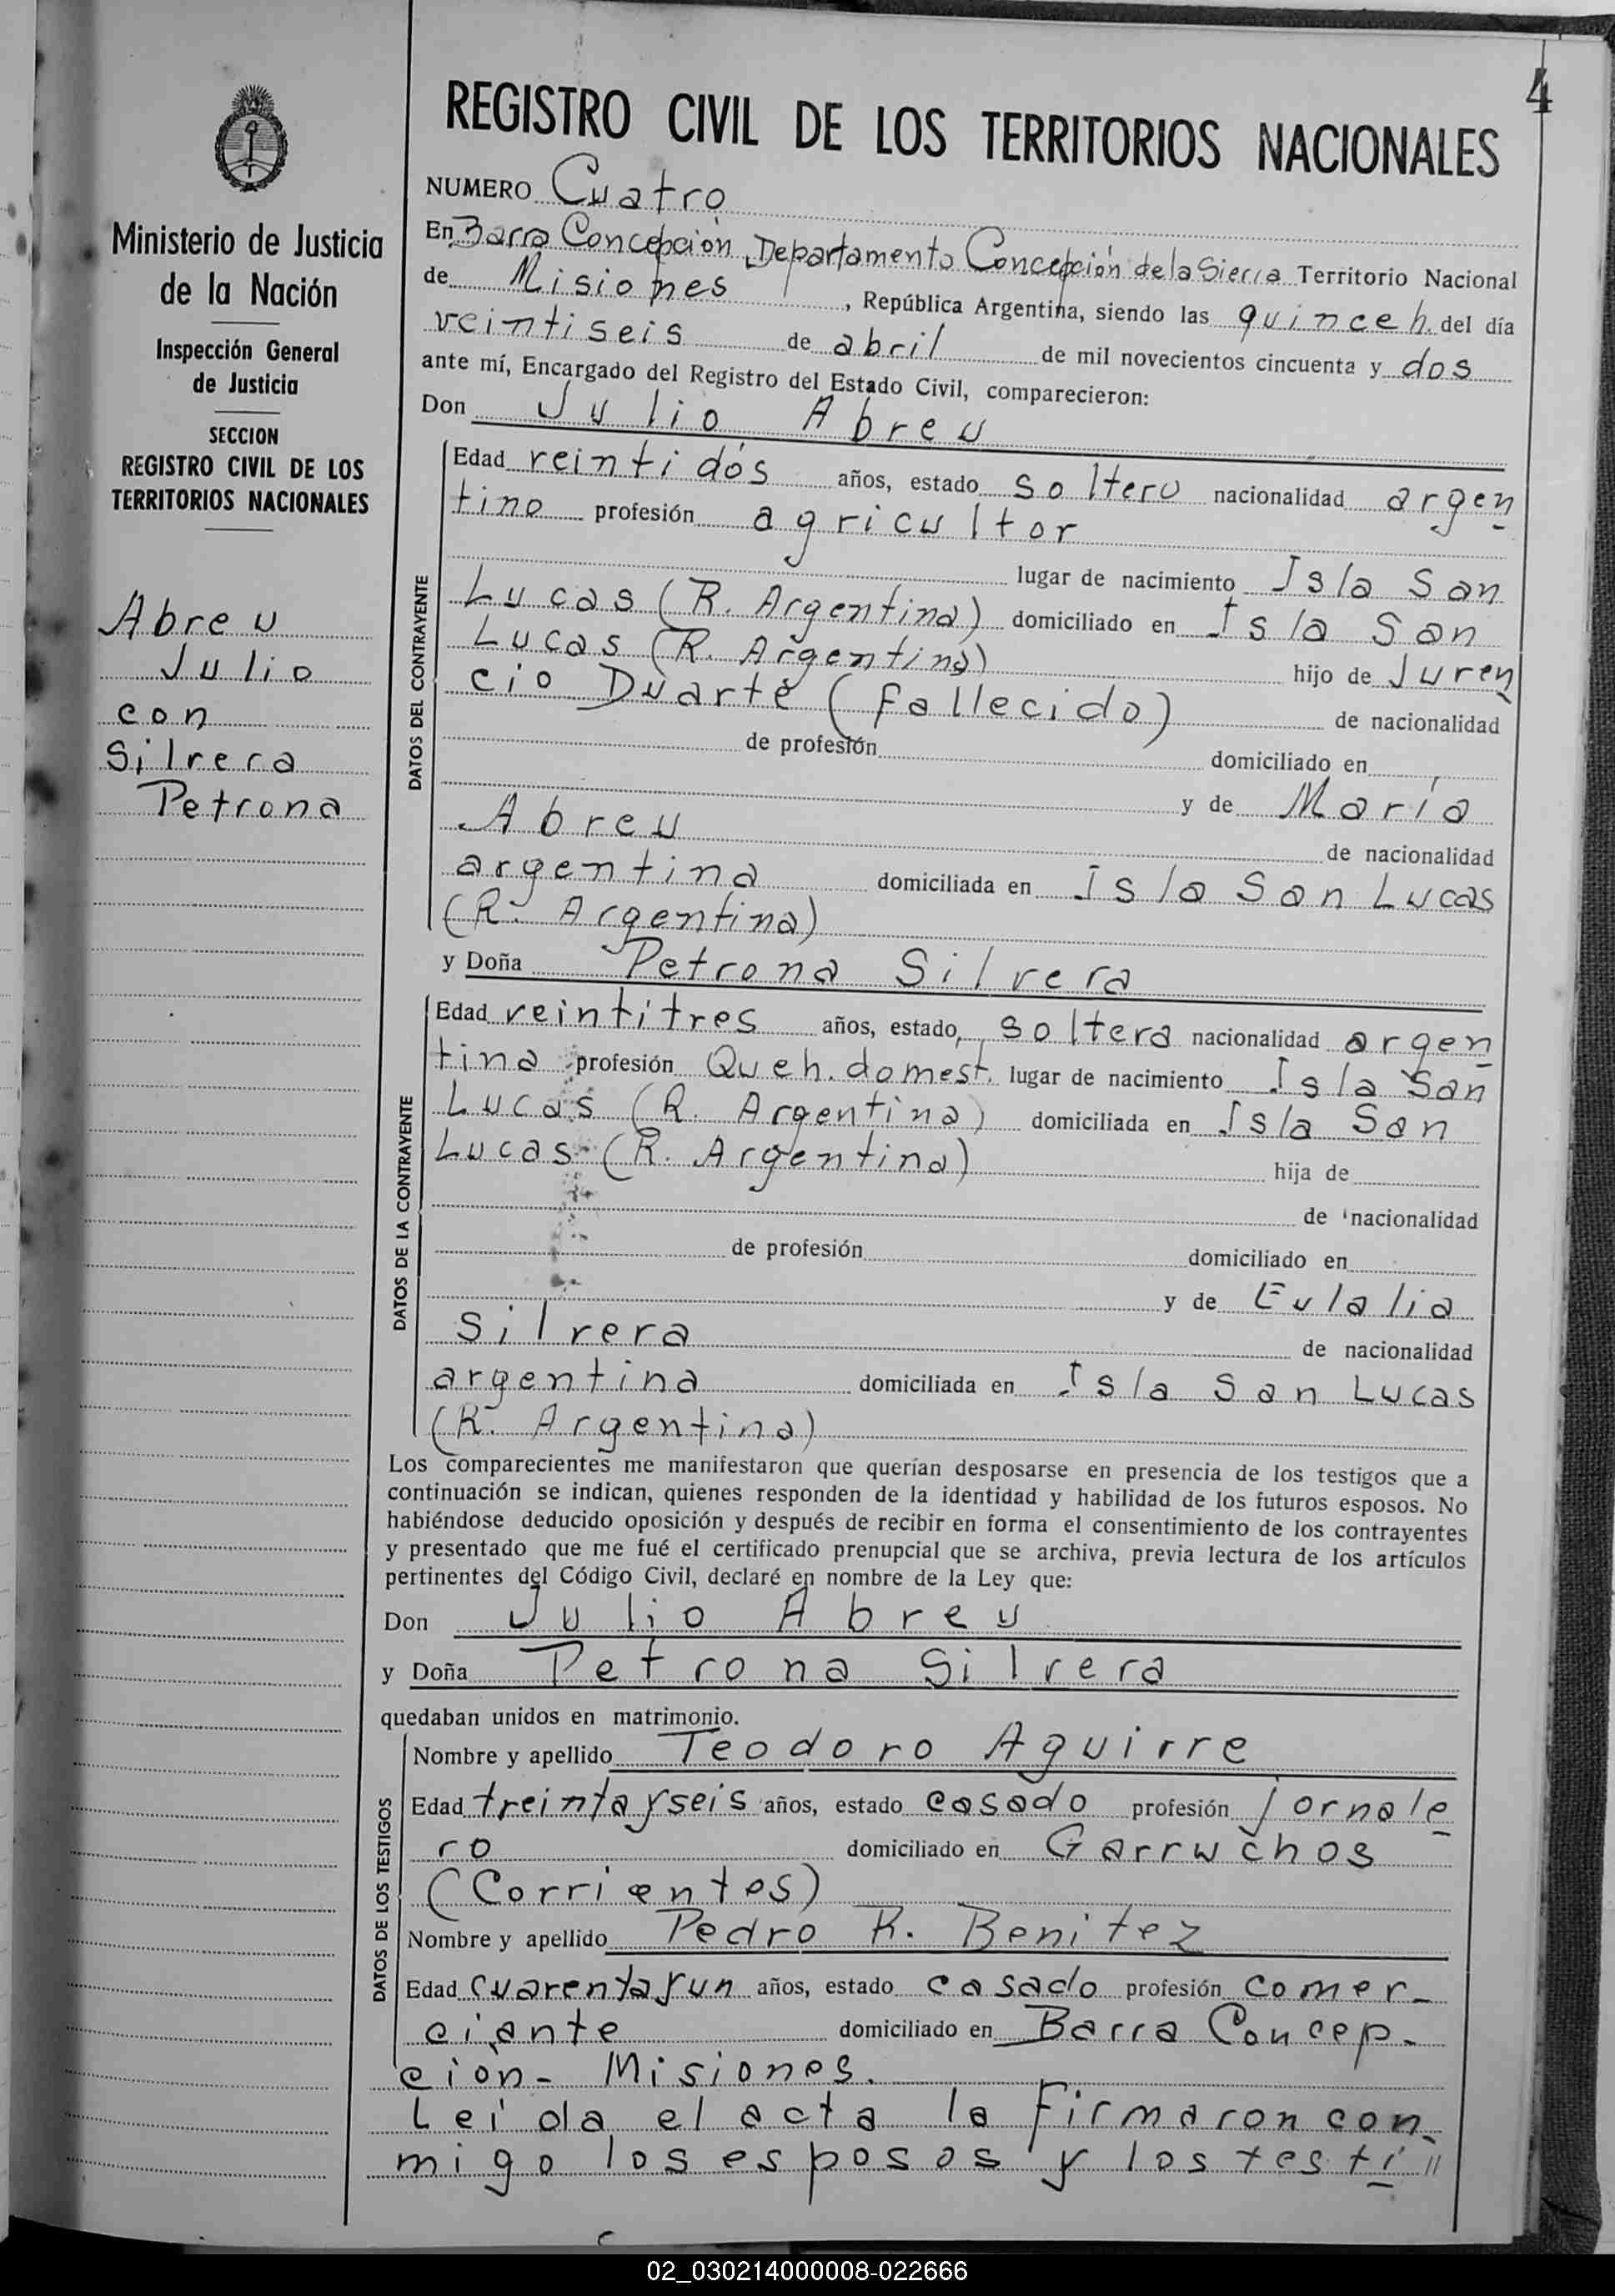 4
REGISTRO CIVIL DE LOS TERRITORIOS NACIONALES
Ministerio de Justicia
de la Nación
Inspección General
de Justicia
SECCION
REGISTRO CIVIL DE LOS
TERRITORIOS NACIONALES
Abreu
Julio
con
Silvera
Petrona
NUMERO Cuatro
En Barra Concepción, Departamento Concepción de la Sierra Territorio Nacional
de Misiones, República Argentina, siendo las quince h. del día
veintiseis de abril de mil novecientos cincuenta y dos
ante mí, Encargado del Registro del Estado Civil, comparecieron:
Don Julio Abreu
DATOS DEL CONTRAYENTE
Edad veintidós años, estado soltero nacionalidad argen
tino profesión agricultor
lugar de nacimiento Isla San
Lucas (R. Argentina) domiciliado en Isla San
Lucas (R. Argentina) hijo de Juven
cio Duarte (fallecido) de nacionalidad
de profesión domiciliado en
y de María
Abreu de nacionalidad
argentina domiciliada en Isla San Lucas
(R. Argentina)
y Doña Petrona Silvera
DATOS DE LA CONTRAYENTE
Edad veintitres años, estado, soltera nacionalidad argen
tina profesión Queh. domest. lugar de nacimiento Isla San
Lucas (R. Argentina) domiciliada en Isla San
Lucas (R. Argentina) hija de
de nacionalidad
de profesión domiciliado en
y de Eulalia
Silvera de nacionalidad
argentina domiciliada en Isla San Lucas
(R. Argentina)
Los comparecientes me manifestaron que querían desposarse en presencia de los testigos que a
continuación se indican, quienes responden de la identidad y habilidad de los futuros esposos. No
habiéndose deducido oposición y después de recibir en forma el consentimiento de los contrayentes
y presentado que me fué el certificado prenupcial que se archiva, previa lectura de los artículos
pertinentes del Código Civil, declaré en nombre de la Ley que:
Don Julio Abreu
y Doña Petrona Silvera
quedaban unidos en matrimonio.
DATOS DE LOS TESTIGOS
Nombre y apellido Teodoro Aguirre
Edad treinta y seis años, estado casado profesión jornale
ro domiciliado en Garruchos
(Corrientes)
Nombre y apellido Pedro R. Benitez
Edad cuarenta y un años, estado casado profesión comer-
ciante domiciliado en Barra Concep-
ción- Misiones.
Leída el acta la firmaron con-
migo los esposos y los testi //
02_030214000008-022666